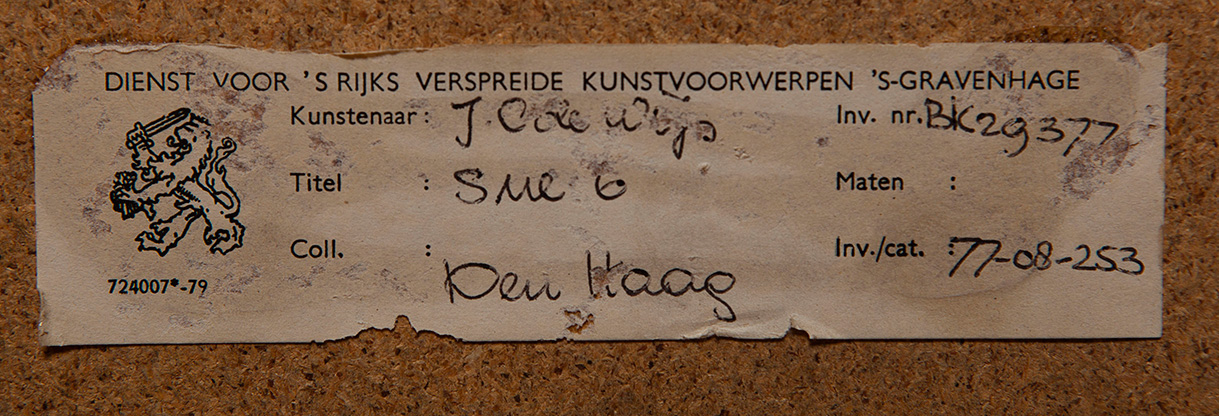 DIENST VOOR 'S RIJKS VERSPREIDE KUNSTVOORWERPEN 'S-GRAVENHAGE
Kunstenaar: J. C. de Wijs Inv. nr. BK29377
Titel : SME 6 Maten :
Coll. : Den Haag Inv./cat. : 77-08-253
724007*-79